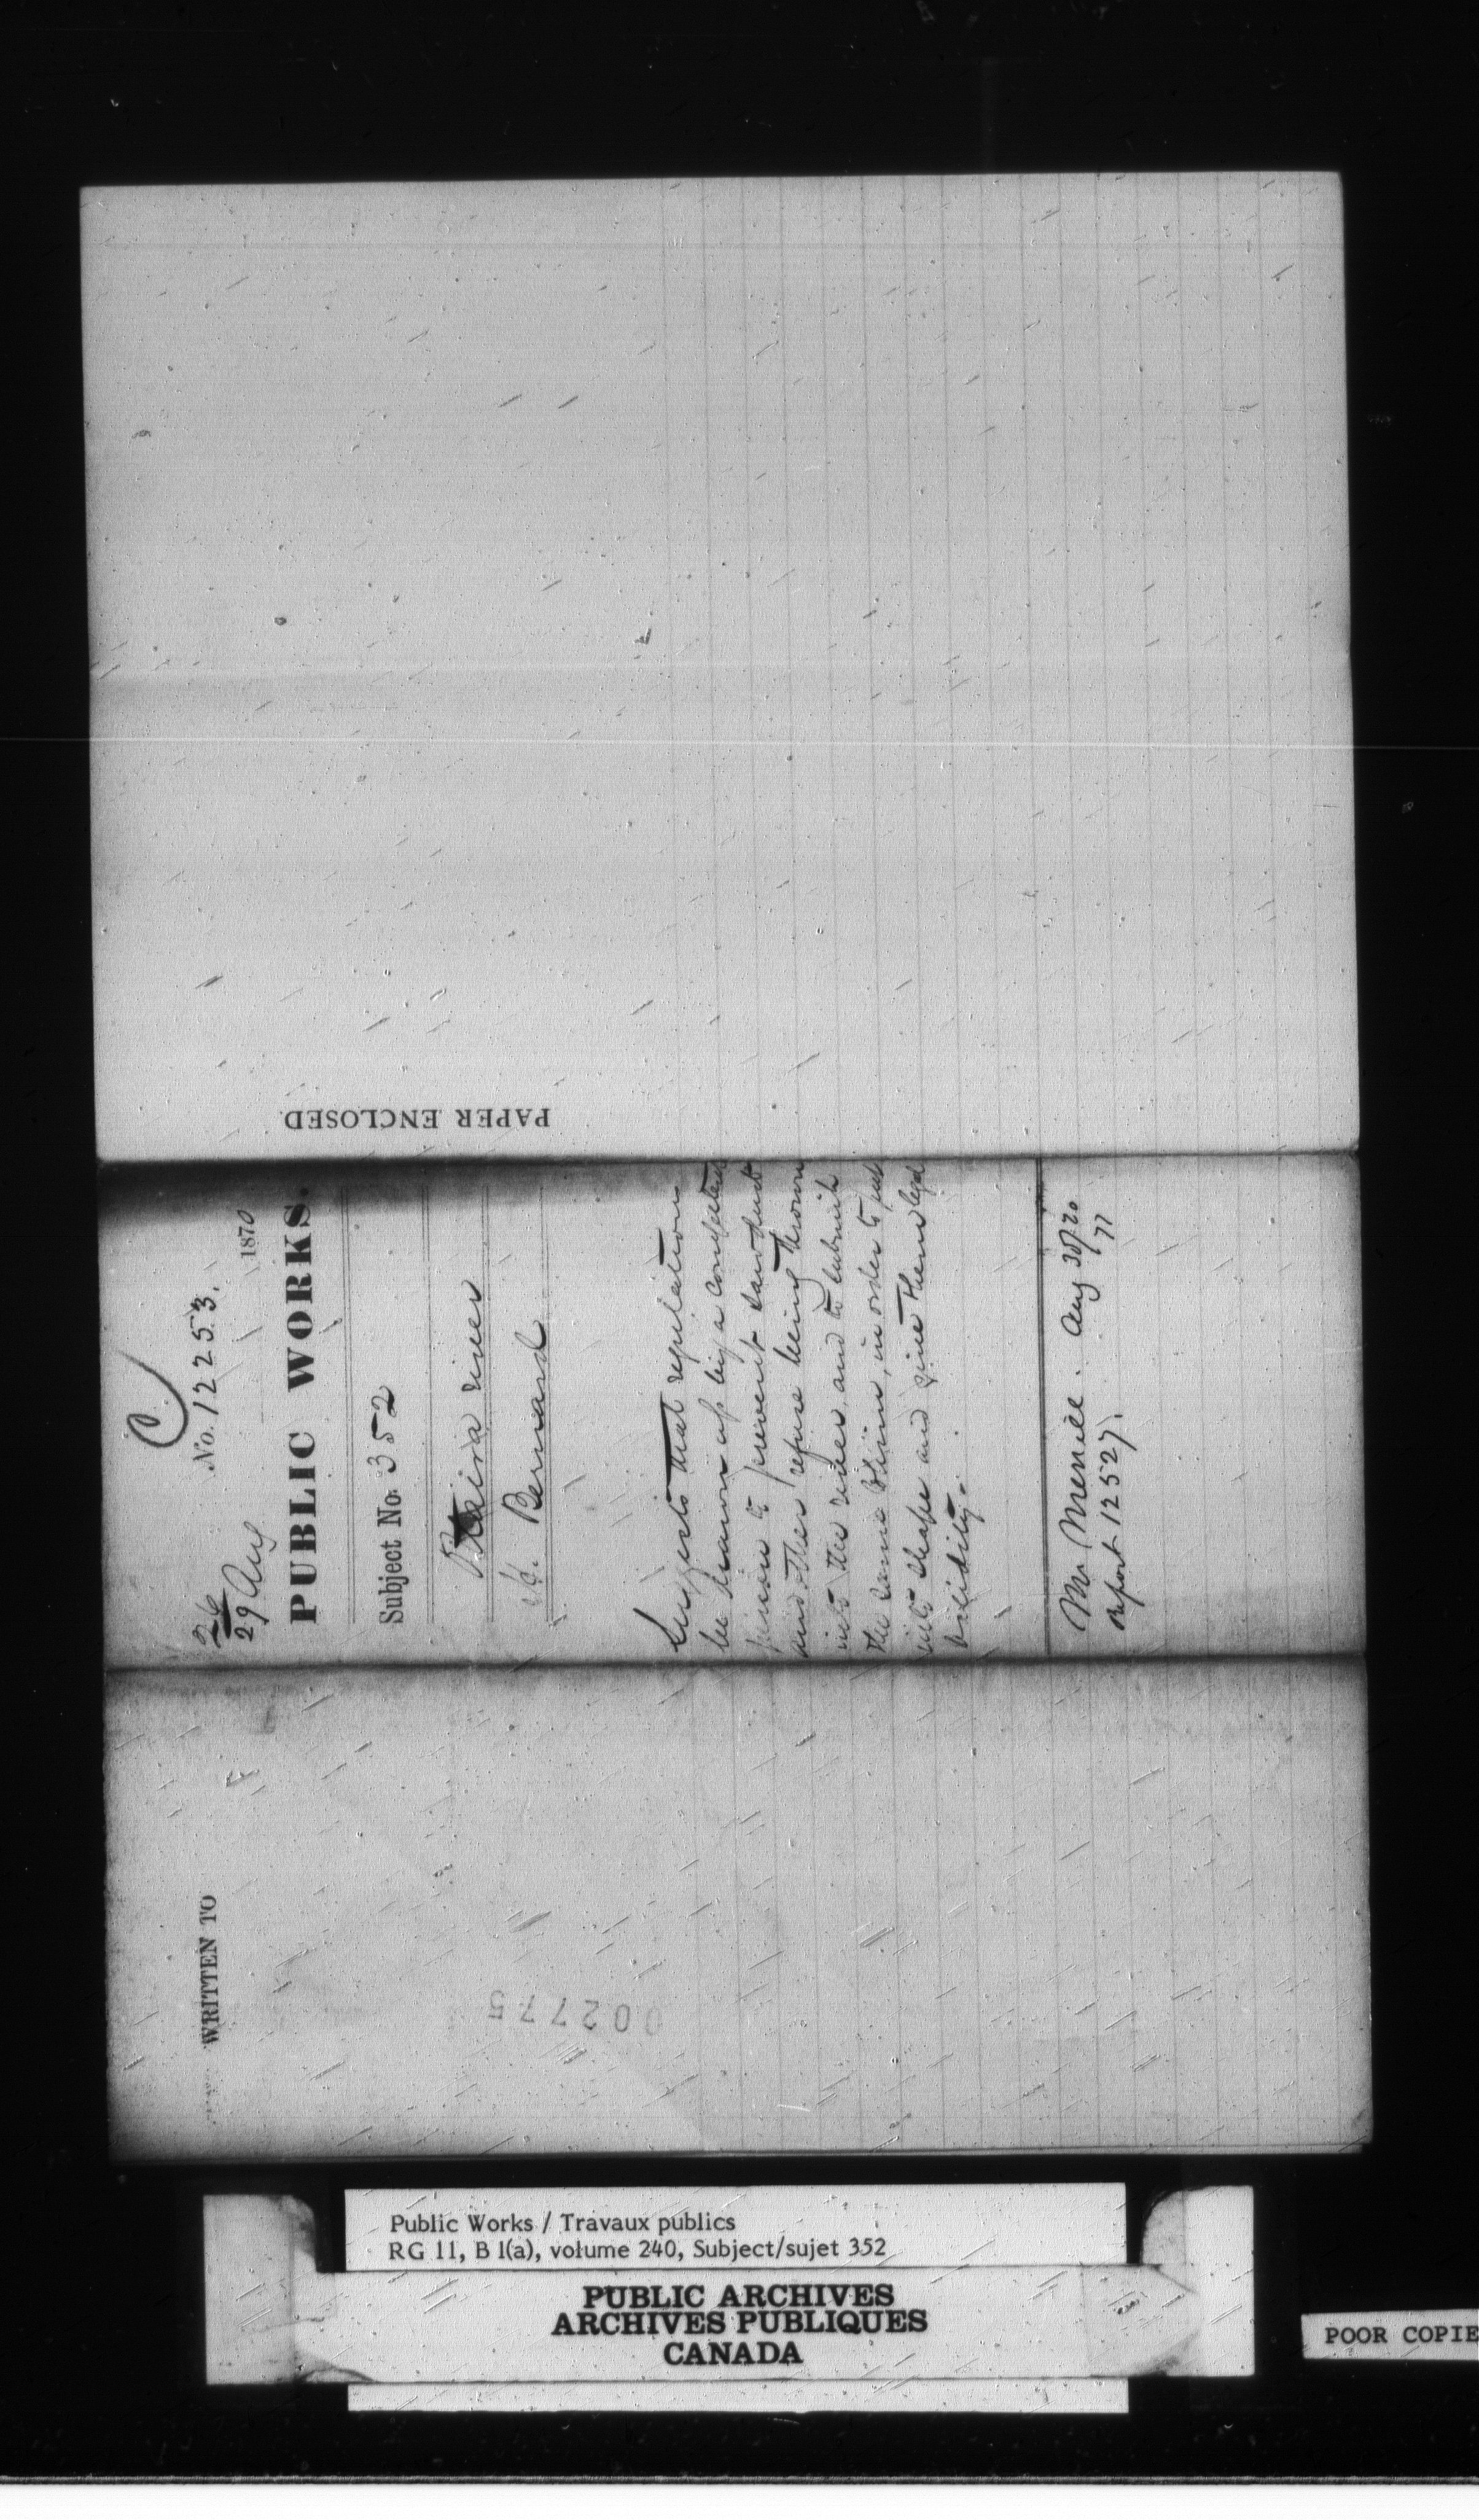 C
No. 12253.
26
29 Aug 1870
PUBLIC WORKS.
Subject No. 352
river
H. Bernard
Suggests that regulations
be drawn up by a competent
person to prevent sawdust
and other refuse being thrown
into the river, and to submit
the same to him, in order to put
into shape and give them legal
validity.
Mr Merrill. Aug 30/70
77
Report 12527.
PAPER ENCLOSED
WRITTEN TO
002775
Public Works / Travaux publics
RG 11, B 1(a), volume 240, Subject/sujet 352
PUBLIC ARCHIVES
ARCHIVES PUBLIQUES
CANADA
POOR COPIE